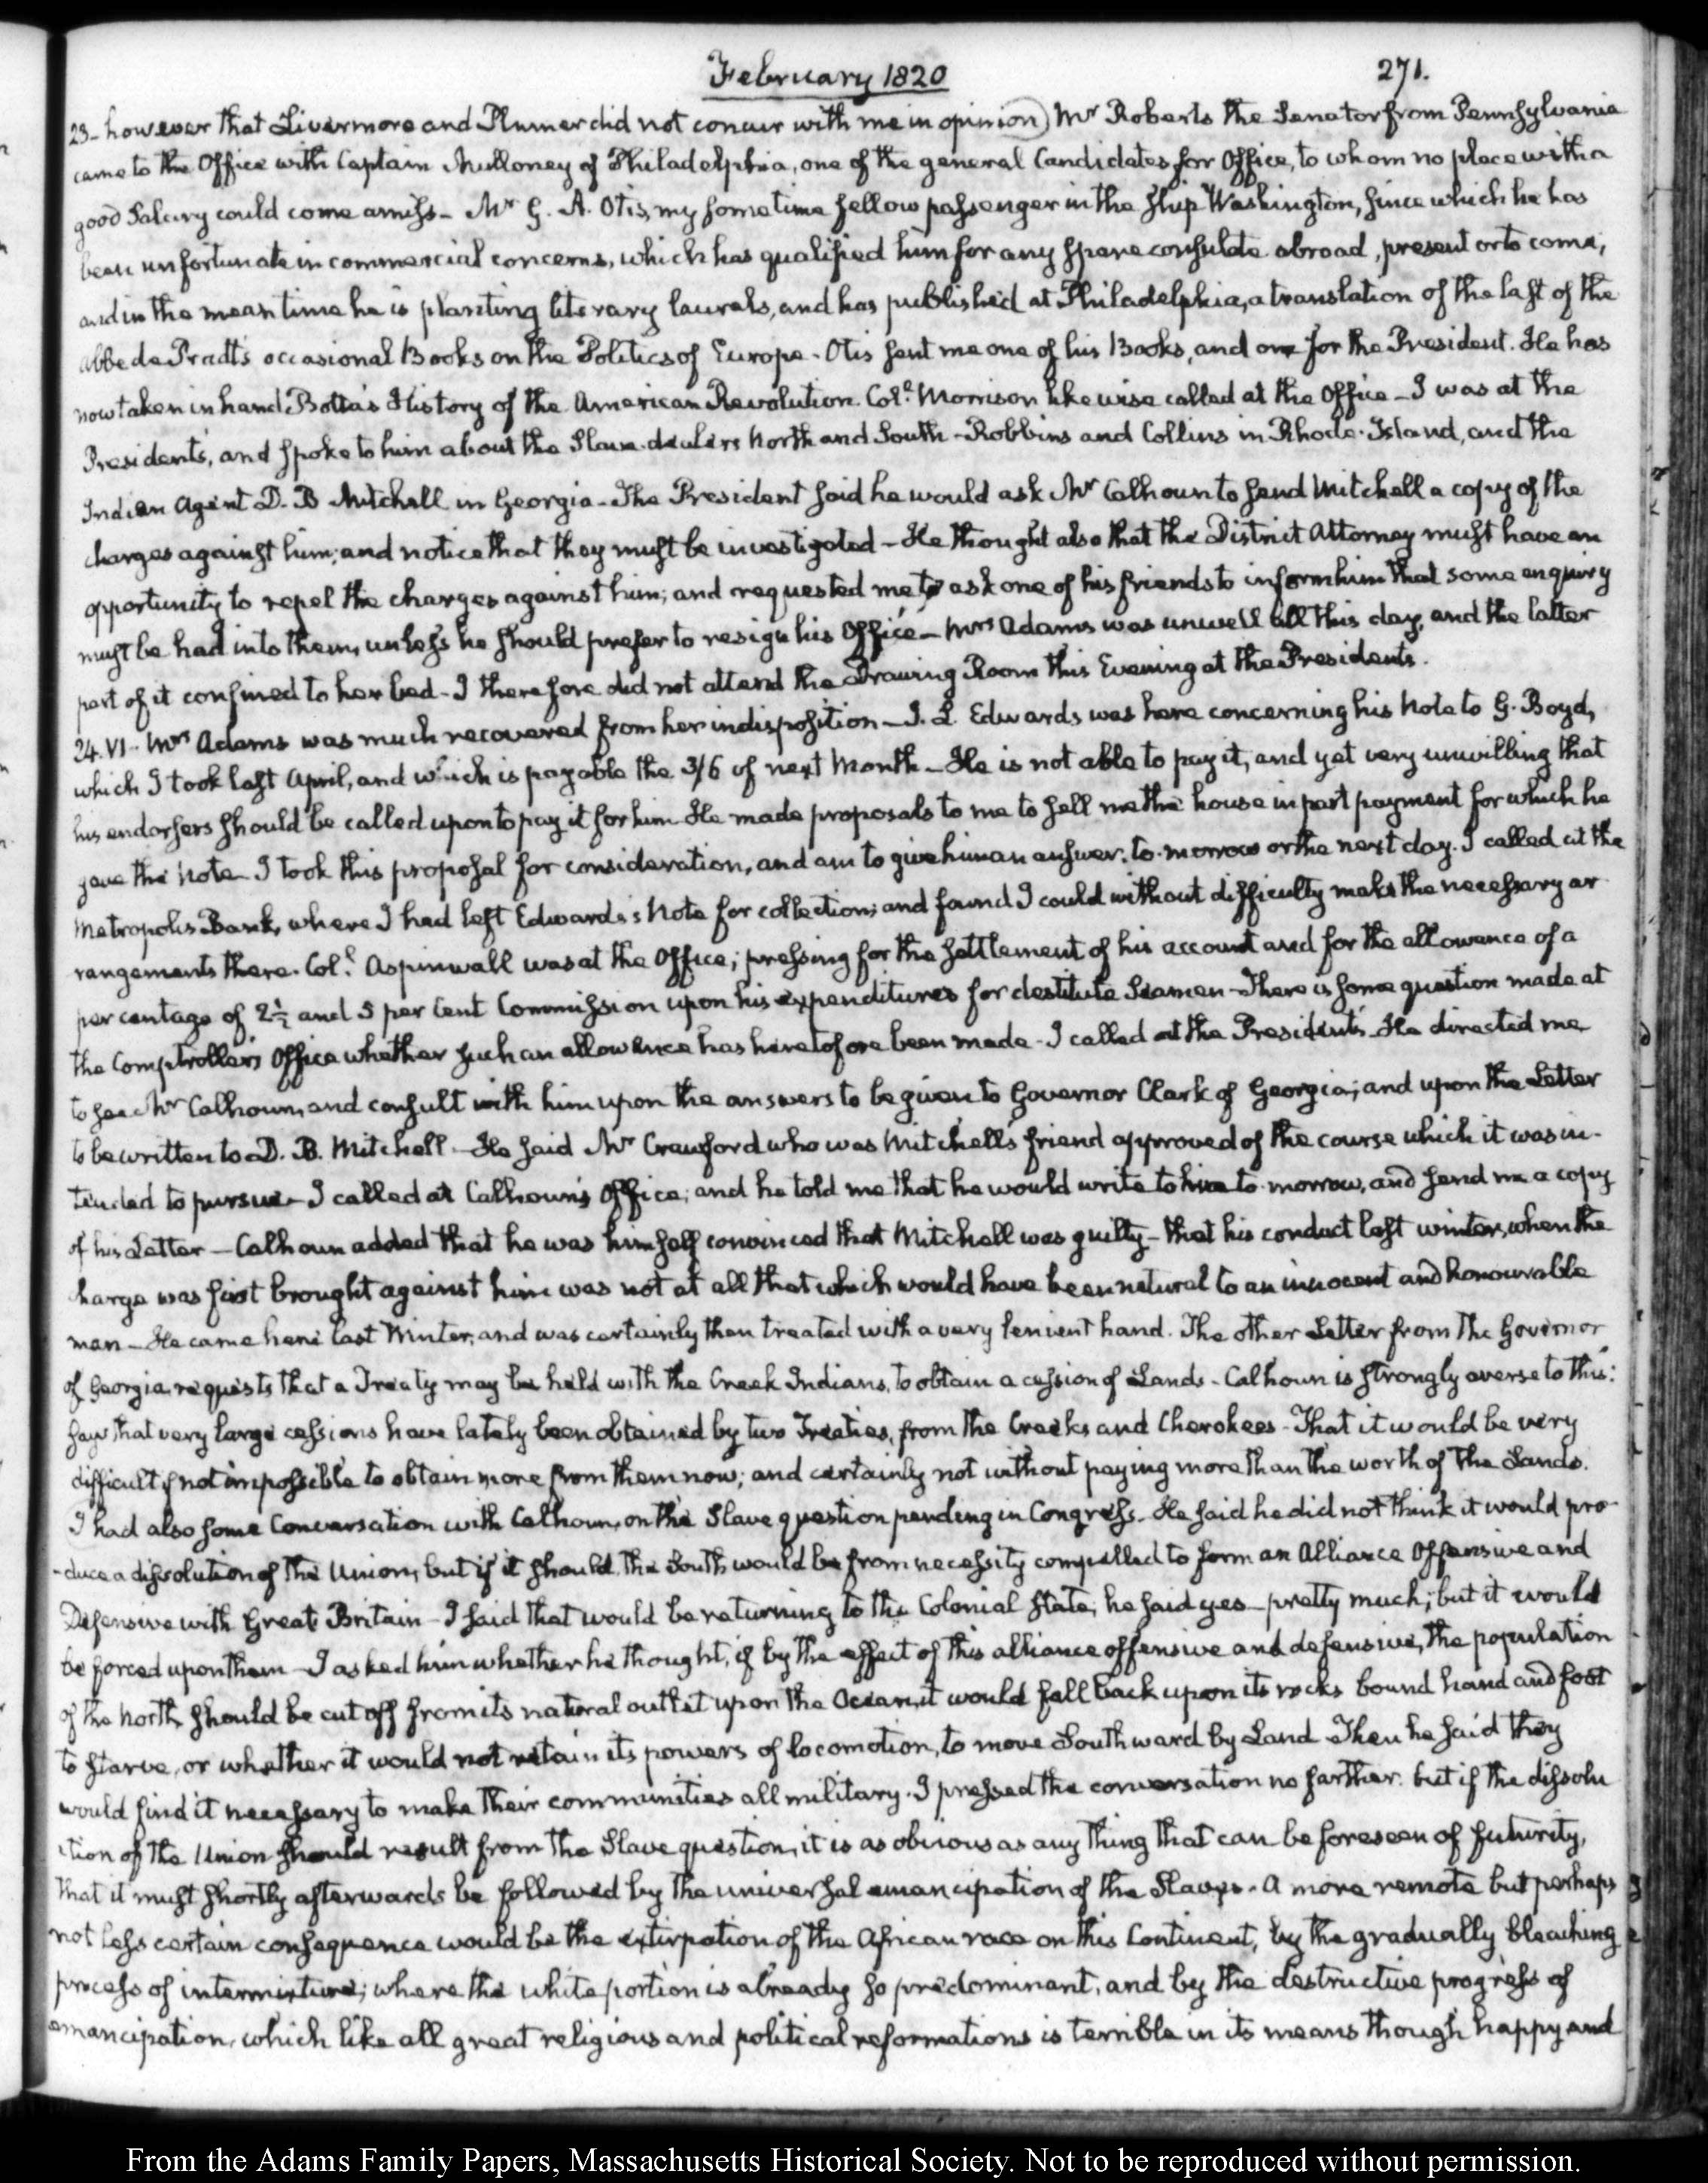 February 1820
271.
23- however that Livermore and Plumer did not concur with me in opinion) Mr Roberts the Senator from Pennsylvania
came to the Office with Captain Mulloney of Philadelphia, one of the general Candidates for Office, to whom no place with a
good Salary could come amiss- Mr G. A. Otis, my sometime fellow passenger in the ship Washington, since which he has
been unfortunate in commercial concerns, which has qualified him for any spare consulate abroad, present or to come;
and in the mean time he is planting literary laurels, and has published at Philadelphia, a translation of the last of the
abbe de Pradt's occasional Books on the Politics of Europe- Otis sent me one of his Books, and one for the President. He has
now taken in hand Botta's History of the American Revolution. Coll. Morrison likewise called at the Office- I was at the
Presidents, and spoke to him about the Slave-dealers North and South- Robbins and Collins in Rhode-Island, and the
Indian Agent D. B Mitchell in Georgia- The President said he would ask Mr Calhoun to send Mitchell a copy of the
charges against him; and notice that they must be investigated- He thought also that the District Attorney must have an
opportunity to repel the charges against him; and requested me to ask one of his friends to inform him that some enquiry
must be had into them, unless he should prefer to resign his Office- Mrs Adams was unwell all this day, and the latter
part of it confined to her bed- I therefore did not attend the Drawing Room this Evening at the Presidents.
24. VI. Mrs Adams was much recovered from her indisposition- J. L. Edwards was here concerning his Note to G. Boyd,
which I took last April, and which is payable the 3/6 of next Month- He is not able to pay it, and yet very unwilling that
his endorsers should be called upon to pay it for him He made proposals to me to sell me the house in part payment for which he
gave the Note- I took this proposal for consideration, and am to give him an answer, to-morrow or the next day. I called at the
Metropolis Bank, where I had left Edwards's Note for collection; and found I could without difficulty make the necessary ar-
rangements there. Coll. Aspinwall was at the Office; pressing for the settlement of his account and for the allowance of a
per centage of 2½ and 5 per Cent Commission upon his expenditures for destitute Seamen- There is some question made at
the Comptroller's Office whether such an allowance has heretofore been made- I called at the President's. He directed me
to see Mr Calhoun, and consult with him upon the answers to be given to Governor Clark of Georgia; and upon the Letter
to be written to D. B. Mitchell- He said Mr Crawford who was Mitchell's friend approved of the course which it was in-
tended to pursue- I called at Calhoun's Office; and he told me that he would write to him to-morrow, and send me a copy
of his Letter- Calhoun added that he was himself convinced that Mitchell was guilty- that his conduct last winter, when the
harge was first brought against him was not at all that which would have been natural to an innocent and honourable
man- He came here last Winter, and was certainly then treated with a very lenient hand. The other Letter from the Governor
of Georgia, requests that a Treaty may be held with the Creek Indians, to obtain a cession of Lands- Calhoun is strongly averse to this:
says that very large cessions have lately been obtained by two Treaties, from the Creeks and Cherokees- That it would be very
difficult if not impossible to obtain more from them now; and certainly not without paying more than the worth of the Lands.
I had also some Conversation with Calhoun, on the Slave question pending in Congress. He said he did not think it would pro-
-duce a dissolution of the Union, but if it should, the South would be from necessity compelled to form an Alliance Offensive and
Defensive with Great Britain- I said that would be returning to the Colonial state; he said yes- pretty much; but it would
be forced upon them- I asked him whether he thought, if by the effect of this alliance offensive and defensive, the population
of the North should be cut off from its natural outlet upon the Ocean, it would fall back upon its rocks bound hand and foot
to starve, or whether it would not retain its powers of locomotion, to move Southward by Land- Then he said they
would find it necessary to make their communities all military. I pressed the conversation no farther: but if the dissolu
ition of the Union should result from the Slave question, it is as obvious as any thing that can be foreseen of futurity,
that it must shortly afterwards be followed by the universal emancipation of the Slaves- A more remote but perhaps
not less certain consequence would be the extirpation of the African race on this Continent, by the gradually bleaching
process of intermixture; where the white portion is already so predominant, and by the destructive progress of
emancipation, which like all great religious and political reformations is terrible in its means though happy and
From the Adams Family Papers, Massachusetts Historical Society. Not to be reproduced without permission.